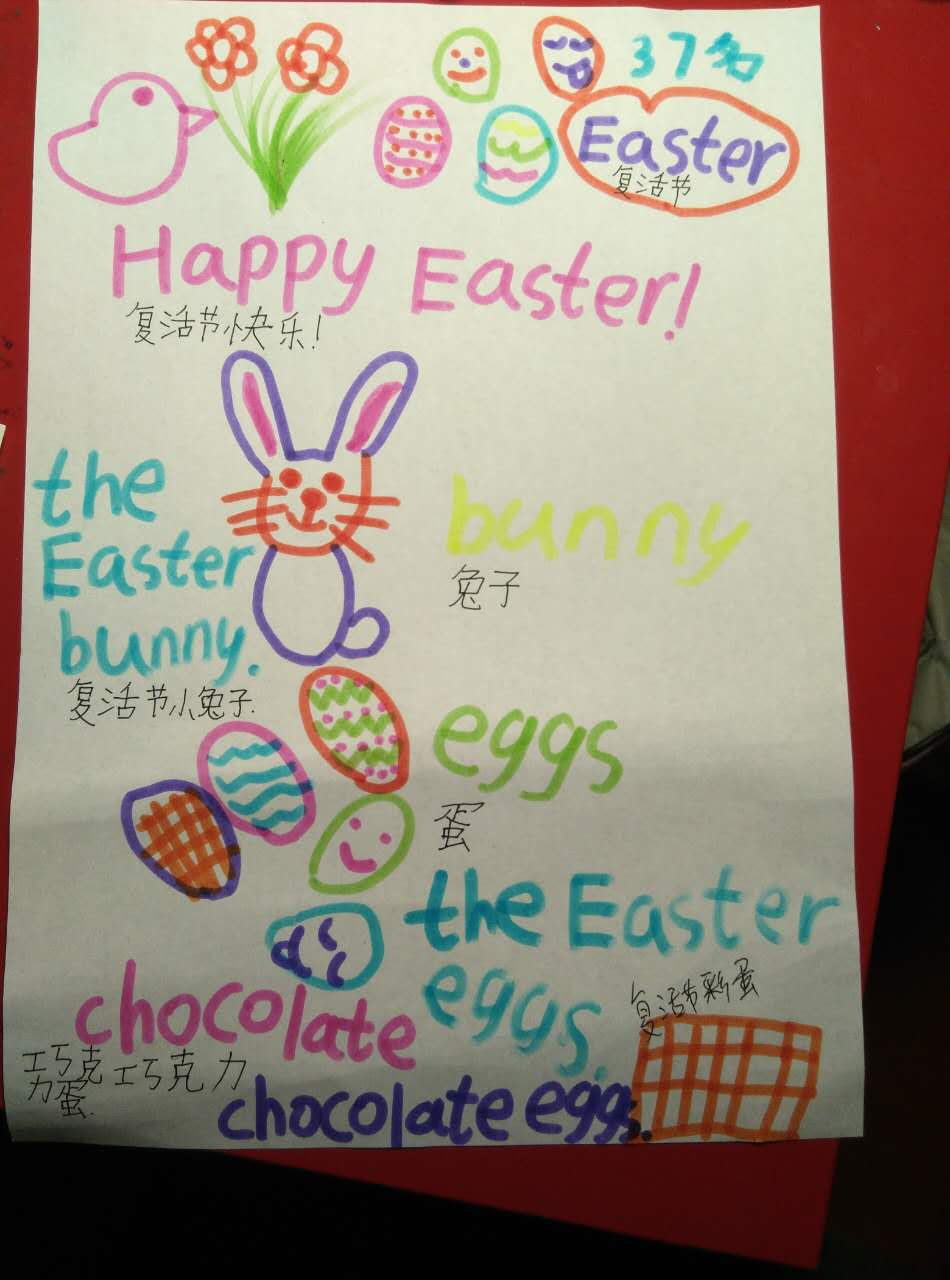 37名
Easter
复活节
Happy Easter!
复活节快乐!
the
Easter
bunny.
复活节小兔子.
bunny
兔子
eggs
蛋
the Easter
eggs.
复活节彩蛋
chocolate
巧克力
巧克
力蛋.
chocolate eggs.